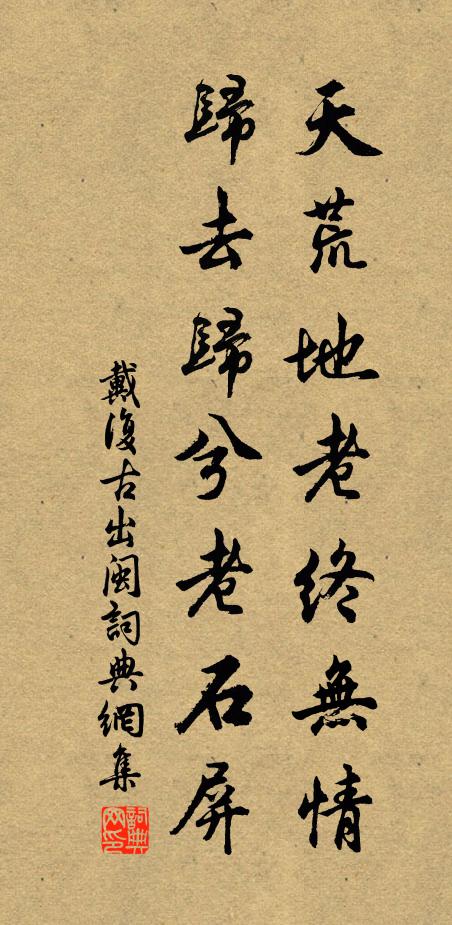 天荒地老終無情
歸去歸兮老石屏
戴復古出閩詞典網集
詞典網印